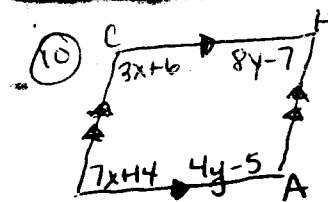 10
C H
3x+6 8y-7
7x+4 4y-5 A